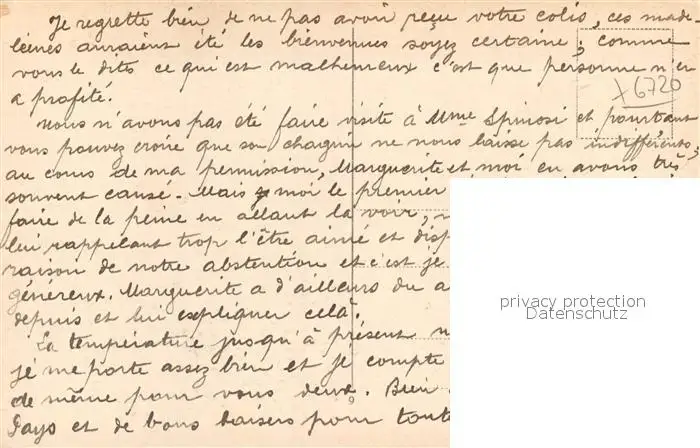 Je regrette bien de ne pas avoir reçu votre colis, ces made-
leines auraient été les bienvenues soyez certaine, comme
vous le dites ce qui est malheureux c'est que personne n'en
a profité.
x 6720
Nous n'avons pas été faire visite à Mme Spinosi et pourtant
vous pouvez croire que son chagrin ne nous laisse pas indifférents,
au cours de ma permission, Marguerite et moi en avons très
souvent causé. Mais moi le premier
faire de la peine en allant la voir,
lui rappelant trop l'être aimé et disp
raison de notre abstention et c'est je
généreux. Marguerite a d'ailleurs du a
depuis et lui expliquer celà.
La température jusqu'à présent n
je me porte assez bien et je compte
de même pour vous deux. Bien
Pays et de bons baisers pour toute
privacy protection
Datenschutz